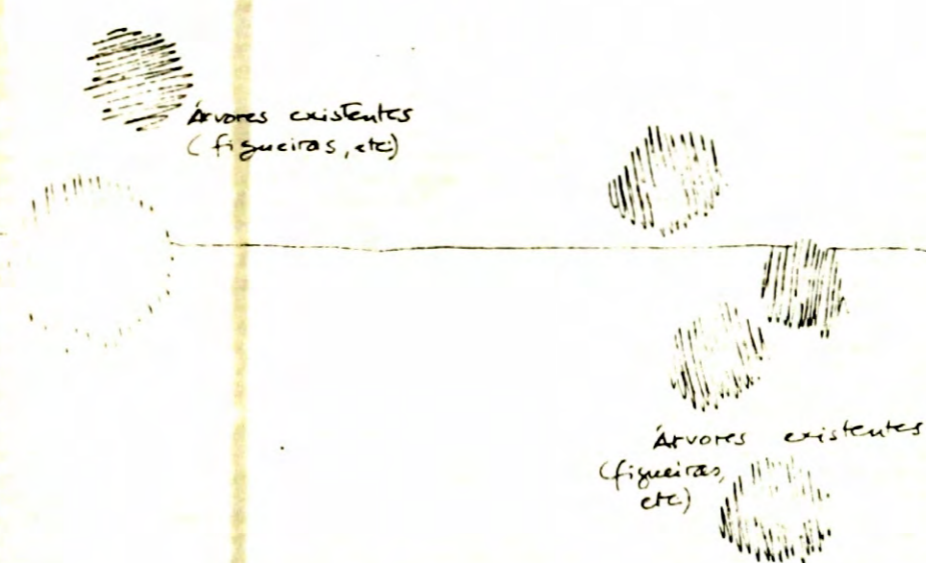 Árvores existentes
(figueiras, etc)
Árvores existentes
(figueiras,
etc)